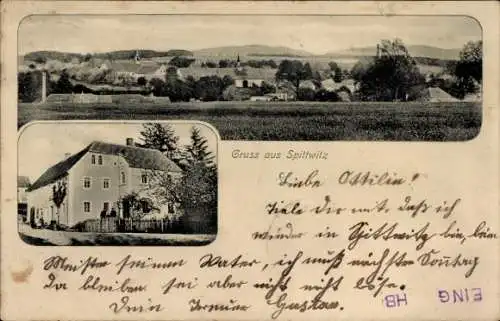 Gruss aus Spittwitz
Liebe Ottilie!
Teile dir mit, daß ich
wieder in Spittwitz bin, beim
Meister seinem Vater, ich muß nächsten Sonntag
da bleiben sei aber nicht böse.
Dein Gustav.
HB EING